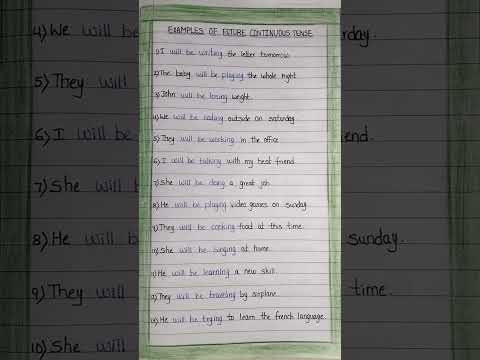 4) We will be
5) They will
6) I will be
7) She will
8) He will be
9) They will
10) She will
EXAMPLES OF FUTURE CONTINUOUS TENSE
1) I will be writing the letter tomorrow.
2) The baby will be playing the whole night.
3) John will be losing weight.
4) We will be outside on saturday.
5) They will be working in the office.
6) I will be talking with my best friend.
7) She will be doing a great job.
8) He will be playing video games on sunday.
9) They will be cooking food at this time.
10) She will be singing at home.
11) He will be learning a new skill.
12) They will be traveling by airplane.
13) He will be trying to learn the french language.
rday.
end.
sunday.
time.